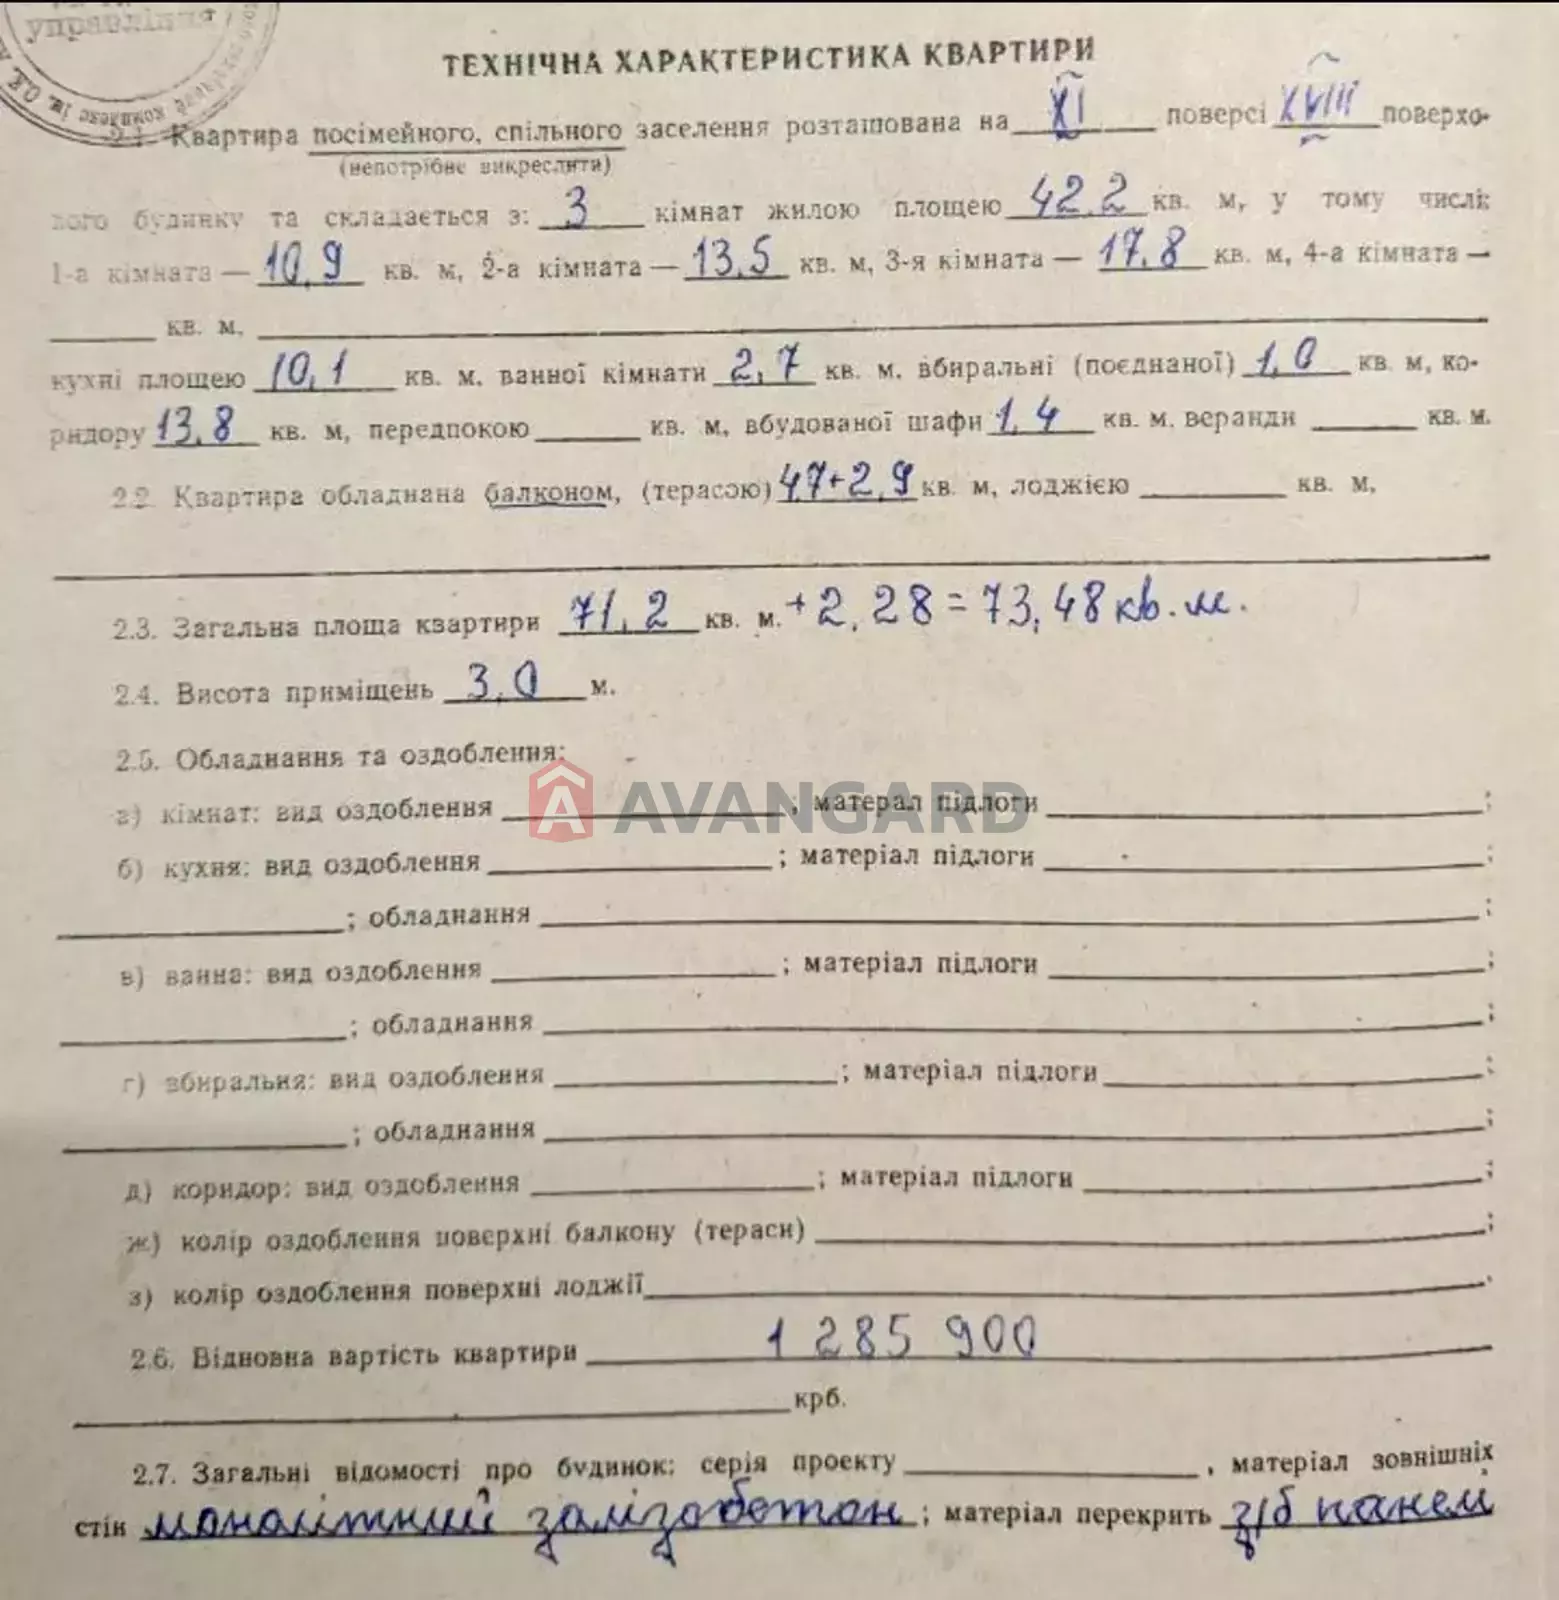 управління
комплекс ім. О.К. А
ТЕХНІЧНА ХАРАКТЕРИСТИКА КВАРТИРИ
Квартира посімейного, спільного заселення розташована на XI поверсі XVIII поверхо-
(непотрібне викреслити)
вого будинку та складається з: 3 кімнат жилою площею 42.2 кв. м, у тому числі:
1-а кімната — 10,9 кв. м, 2-а кімната — 13,5 кв. м, 3-я кімната — 17,8 кв. м, 4-а кімната —
кв. м,
кухні площею 10,1 кв. м. ванної кімнати 2,7 кв. м. вбиральні (поєднаної) 1,0 кв. м, ко-
ридору 13,8 кв. м, передпокою кв. м, вбудованої шафи 1,4 кв. м. веранди кв. м.
2.2. Квартира обладнана балконом, (терасою) 4,7+2,9 кв. м, лоджією кв. м,
2.3. Загальна площа квартири 71,2 кв. м. + 2,28 = 73,48 кв. м.
2.4. Висота приміщень 3,0 м.
2.5. Обладнання та оздоблення:
а) кімнат: вид оздоблення ; матерал підлоги ;
AVANGARD
б) кухня: вид оздоблення ; матеріал підлоги ;
; обладнання ;
в) ванна: вид оздоблення ; матеріал підлоги ;
; обладнання ;
г) вбиральня: вид оздоблення ; матеріал підлоги ;
; обладнання ;
д) коридор: вид оздоблення ; матеріал підлоги ;
ж) колір оздоблення поверхні балкону (тераси) ;
з) колір оздоблення поверхні лоджії .
2.6. Відновна вартість квартири 1 285 900
крб.
2.7. Загальні відомості про будинок: серія проекту , матеріал зовнішніх
стін монолітний залізобетон ; матеріал перекрить з/б панелі